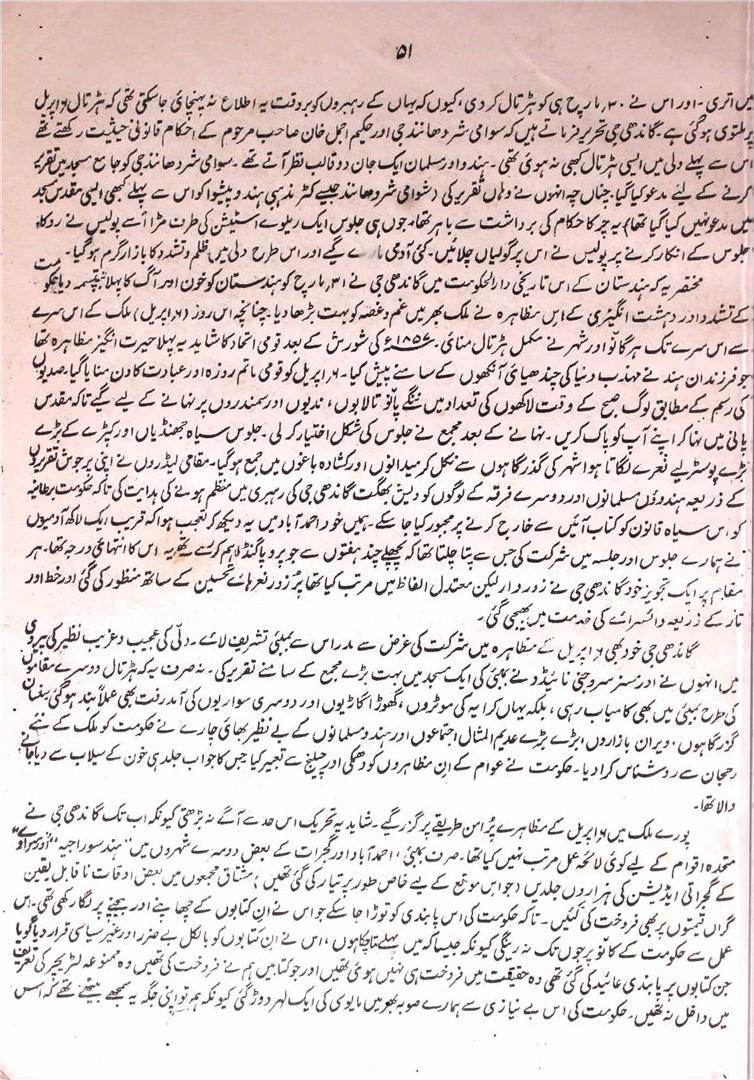 ۵۱
میں اتری۔ اور اس نے ۳۰؍مارچ ہی کو ہڑتال کر دی، کیوں کہ یہاں کے رہبروں کو بروقت یہ اطلاع نہ پہنچائی جا سکتی تھی کہ ہڑتال ۶؍اپریل
پر ملتوی ہو گئی ہے۔ گاندھی جی تحریر فرماتے ہیں کہ سوامی شردھانند جی اور حکیم اجمل خان صاحب مرحوم کے احکام قانونی حیثیت رکھتے تھے
اس سے پہلے دلی میں ایسی ہڑتال کبھی نہ ہوئی تھی۔ ہندو اور مسلمان ایک جان دو قالب نظر آتے تھے۔ سوامی شردھانند جی کو جامع مسجد میں تقریر
کرنے کے لیئے مدعو کیا گیا، چناں چہ انہوں نے وہاں تقریر کی (سوامی شردھانند جیسے کٹر مذہبی ہندو پیشوا کو اس سے پہلے کبھی ایسی مقدس مسجد
میں مدعو نہیں کیا گیا تھا) یہ چیز کا حکام کی برداشت سے باہر تھا، جوں ہی جلوس ایک ریلوے اسٹیشن کی طرف مڑا اُسے پولیس نے روکا،
جلوس کے انکار کرنے پر پولیس نے اس پر گولیاں چلائیں۔ کئی آدمی مارے گیے اور اس طرح دلی میں ظلم و تشدد کا بازار گرم ہو گیا۔
مختصر یہ کہ ہندستان کے اس تاریخی دارالحکومت میں گاندھی جی نے ۳۱؍مارچ کو ہندستان کو خون اور آگ کا پہلا بپتسمہ دیا۔ حکومت
کے تشدد اور دہشت انگیزی کے اس مظاہرہ نے ملک بھر میں غم و غصہ کو بہت بڑھا دیا۔ چنانچہ اس روز (۶؍اپریل) ملک کے اس سرے
سے اس سرے تک ہر گانو اور شہر نے مکمل ہڑتال منائی۔ ۱۸۵۷ء کی شورش کے بعد قومی اتحاد کا شاید یہ پہلا حیرت انگیز مظاہرہ تھا
جو فرزندان ہند نے مہذب دنیا کی چندھیائی آنکھوں کے سامنے پیش کیا۔ ۶؍اپریل کو قومی ماتم روزہ اور عبادت کا دن منایا گیا۔ صدیوں
کی رسم کے مطابق لوگ صبح کے وقت لاکھوں کی تعداد میں ننگے پانو تالابوں، ندیوں اور سمندروں پر نہانے کے لیے گیے تاکہ مقدس
پانی میں نہا کر اپنے آپ کو پاک کریں۔ نہانے کے بعد مجمع نے جلوس کی شکل اختیار کر لی۔ جلوس سیاہ جھنڈیاں اور کپڑے کے بڑے
بڑے پوسٹر لیے نعرے لگاتا ہوا شہر کی گذرگاہوں سے نکل کر میدانوں اور کشادہ باغوں میں جمع ہو گیا۔ مقامی لیڈروں نے اپنی پرجوش تقریروں
کے ذریعہ ہندوؤں مسلمانوں اور دوسرے فرقہ کے لوگوں کو دیش بھگت گاندھی جی کی رہبری میں منظم ہونے کی ہدایت کی تاکہ حکومت برطانیہ
کو اس سیاہ قانون کو کتاب آئیں سے خارج کرنے پر مجبور کیا جا سکے۔ ہمیں خود احمدآباد میں یہ دیکھ کر تعجب ہوا کہ قریب ایک لاکھ آدمیوں
نے ہمارے جلوس اور جلسہ میں شرکت کی جس سے پتا چلتا تھا کہ پچھلے چند ہفتوں سے جو پروپاگنڈا ہم کر رہے تھے یہ اس کا انتہائی درجہ تھا۔ ہر
مقام پر ایک تجویز خود گاندھی جی نے زوردار لیکن معتدل الفاظ میں مرتب کیا تھا پُر زور نعرہاے تحسین کے ساتھ منظور کی گئی اور خط اور
تار کے ذریعہ وائسرائے کی خدمت میں بھیجی گئی۔
گاندھی جی خود بھی ۶؍اپریل کے مظاہرہ میں شرکت کی غرض سے مدراس سے بمبئی تشریف لائے۔ دلّی کی عجیب و غریب نظیر کی پیروی
میں انہوں نے اور مسز سروجنی نائیڈو نے بمبئی کی ایک مسجد میں بہت بڑے مجمع کے سامنے تقریر کی۔ نہ صرف یہ کہ ہڑتال دوسرے مقاموں
کی طرح بمبئی میں بھی کامیاب رہی، بلکہ یہاں کرایہ کی موٹروں، گھوڑا گاڑیوں اور دوسری سواریوں کی آمد رفت بھی عملاً بند ہو گئی سنسان
گزرگاہوں، ویران بازاروں، بڑے بڑے عدیم المثال اجتماعوں اور ہندو مسلمانوں کے بے نظیر بھائی چارے نے حکومت کو ملک کے نئے
رحجان سے روشناس کرا دیا۔ حکومت نے عوام کے ان مظاہروں کو دھمکی اور چیلنج سے تعبیر کیا جس کا جواب جلد ہی خون کے سیلاب سے دیا جانے
والا تھا۔
پورے ملک میں ۶؍اپریل کے مظاہرے پُر امن طریقے پر گزر گیے۔ شاید یہ تحریک اس حد سے آگے نہ بڑھتی کیونکہ اب تک گاندھی جی نے
متحدہ اقوام کے لیے کوئی لائحہ عمل مرتب نہیں کیا تھا۔ صرف بمبئی، احمدآباد اور گجرات کے بعض دوسرے شہروں میں "ہند سوراجیہ" اور
کے گجراتی ایڈیشن کی ہزاروں جلدیں (جو اس موقع کے لیے خاص طور پر تیار کی گئی تھیں) مشتاق مجمعوں میں بعض اوقات ناقابل یقین
گراں قیمتوں پر بھی فروخت کی گئیں۔ تاکہ حکومت کی اس پابندی کو توڑا جا سکے جو اس نے ان کتابوں کے چھاپنے اور بیچنے پر لگا رکھی تھی۔ اس
عمل سے حکومت کے کانو پر جوں تک نہ رینگی کیونکہ جیسا کہ میں پہلے بتا چکا ہوں، اس نے ان کتابوں کو بالکل بے ضرر اور غیر سیاسی قرار دیا گویا
جن کتابوں پر پابندی عائد کی گئی تھی وہ حقیقت میں فروخت ہی نہیں ہوئی تھیں اور جو کتابیں ہم نے فروخت کی تھیں وہ ممنوعہ لٹریچر کی تعریف
میں داخل نہ تھیں۔ حکومت کی اس بے نیازی سے ہمارے صوبہ بھر میں مایوسی کی ایک لہر دوڑ گئی کیونکہ ہم تو اپنی جگہ یہ سمجھے بیٹھے تھے کہ اس